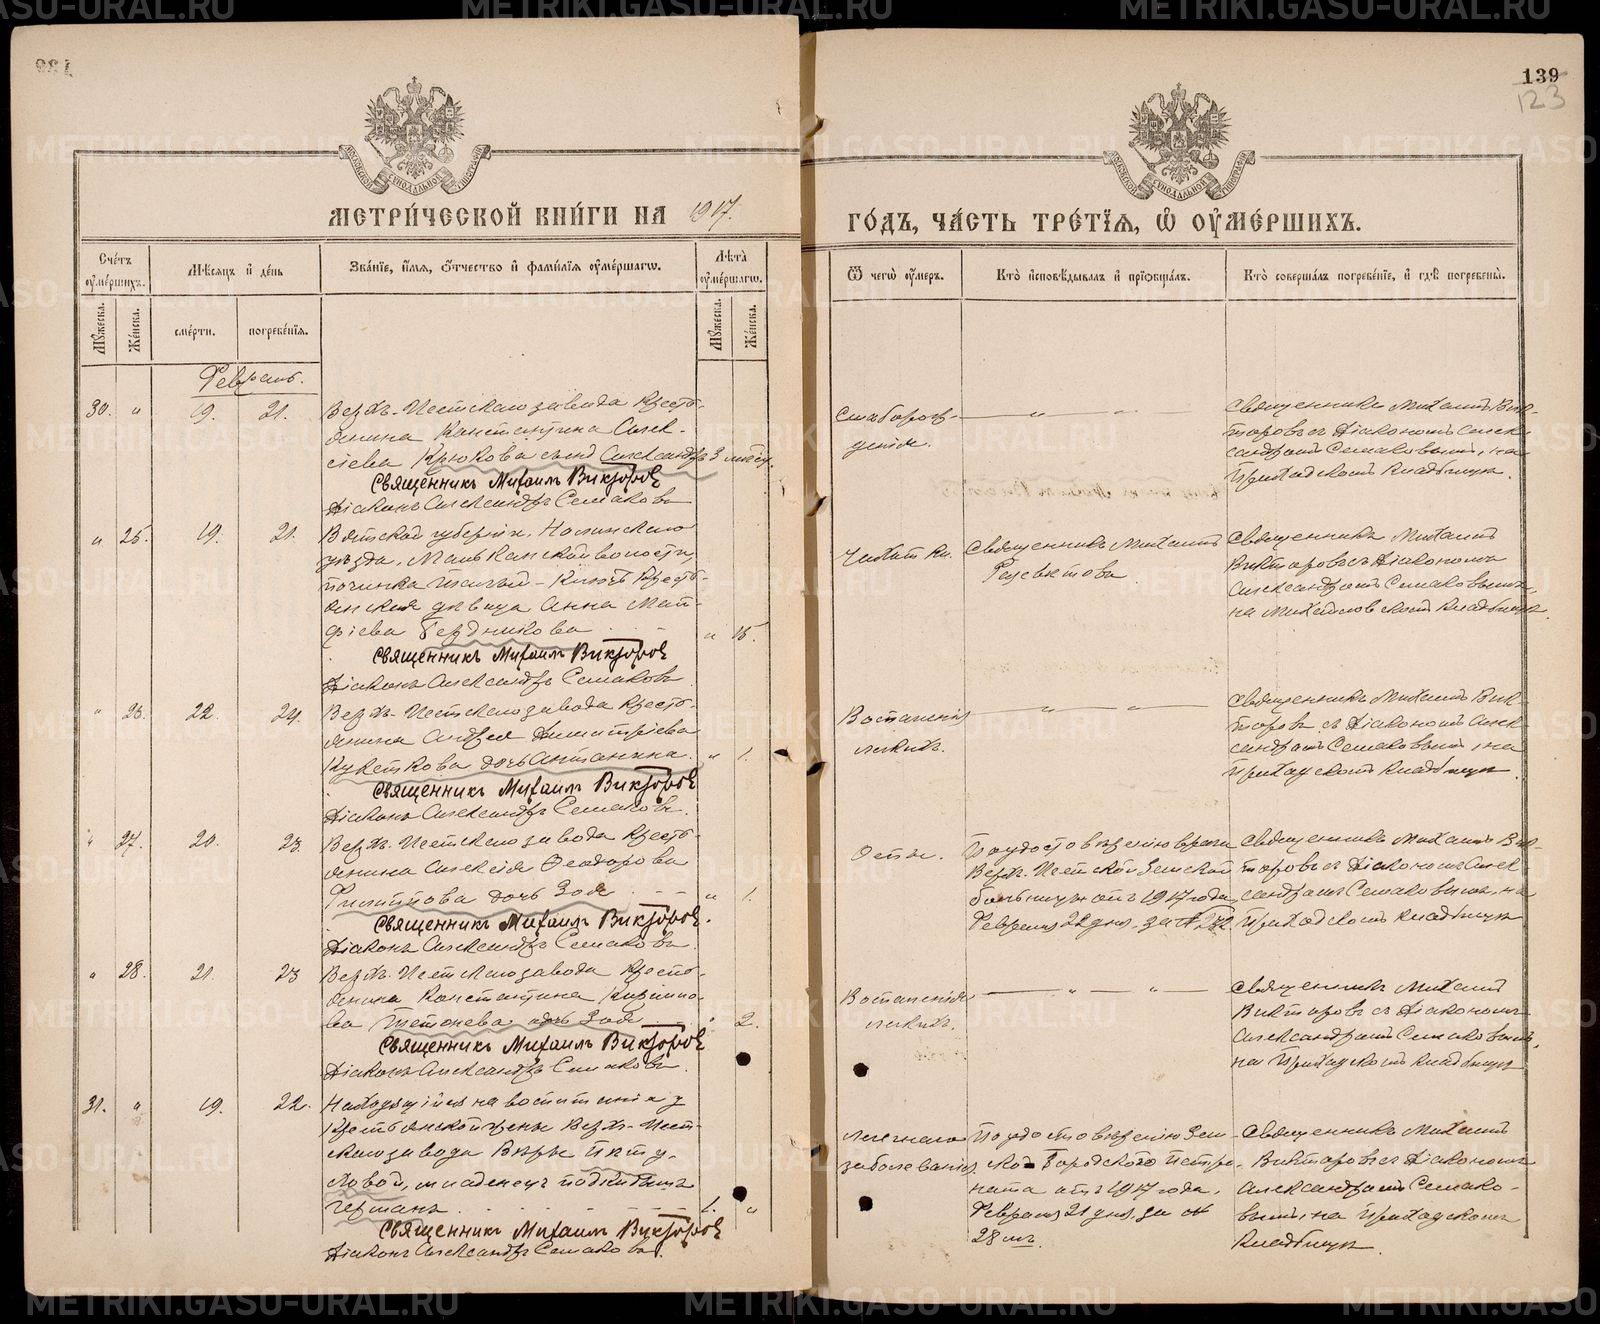 139
123
МЕТРИ́ЧЕСКОЙ КНИ́ГИ НА 1917.
ГО́ДЪ, ЧА́СТЬ ТРЕ́ТІЯ, Ѡ҆ ОУ҆МЕ́РШИХЪ.
Сче́тъ оу҆ме́ршихъ.
Мѣ́сяцъ и҆ де́нь
Зва́ніе, и҆́мя, ѻ҆́тчество и҆ фами́лія оу҆ме́ршагѡ.
Лѣ́та оу҆ме́ршагѡ.
Ѿ чегѡ̀ оу҆́меръ.
Кто̀ и҆сповѣ́дывалъ и҆ прїѡбща́лъ.
Кто̀ соверша́лъ погребе́ніе, и҆ гдѣ̀ погребены̀.
Му́жеска.
Же́нска.
сме́рти.
погребе́нія.
Му́жеска.
Же́нска.
Февраль.
30. " 19. 21.
Верхъ-Исетскаго завода кресть-
янина Константина Алек-
сіева Крюкова сынъ Александръ 3 мѣс.
Священникъ Михаилъ Викторовъ
Діаконъ Александръ Семаковъ
Слаборож-
денія.
Священникъ Михаилъ Вик-
торовъ съ Діакономъ Алек-
сандромъ Семаковымъ, на
Приходскомъ кладбищѣ.
" 25. 19. 21.
Вятской губерніи, Нолинскаго
уѣзда,
починка Ключъ кресть-
янская дѣвица Анна Мат-
фіева Бердникова " 15.
Священникъ Михаилъ Викторовъ
Діаконъ Александръ Семаковъ
Священникъ Михаилъ
Священникъ Михаилъ
Викторовъ съ Діакономъ
Александромъ Семаковымъ,
на Михайловскомъ кладбищѣ.
" 26. 22. 24.
Верхъ-Исетскаго завода кресть-
янина Андрея Димитріева
дочь Антонина. " 1.
Священникъ Михаилъ Викторовъ
Діаконъ Александръ Семаковъ.
Воспаленія
легкихъ.
Священникъ Михаилъ Вик-
торовъ съ Діакономъ Алек-
сандромъ Семаковымъ, на
Приходскомъ кладбищѣ.
" 27. 20. 23.
Верхъ-Исетскаго завода кресть-
янина Алексія Ѳеодорова
Филиппова дочь Зоя " 1.
Священникъ Михаилъ Викторовъ.
Діаконъ Александръ Семаковъ.
Оспы.
По удостовѣренію врача
Верхъ-Исетской Земской
больницы отъ 1917 года,
Февраля дня, за №
Священникъ Михаилъ Вик-
торовъ съ Діакономъ Алек-
сандромъ Семаковымъ, на
Приходскомъ кладбищѣ
" 28. 21. 23
Верхъ-Исетскаго завода кресть-
янина Константина
ва дочь Зоя " 2.
Священникъ Михаилъ Викторовъ
Діаконъ Александръ Семаковъ.
Воспаленія
легкихъ.
Священникъ Михаилъ
Викторовъ съ Діакономъ
Александромъ Семаковымъ,
на Приходскомъ кладбищѣ
31. " 19. 22.
Находящійся на воспитаніи у
Крестьянской жены Верхъ-Исет-
скаго завода Вѣры Пету-
ховой, младенецъ подкидышъ
Германъ 1. "
Священникъ Михаилъ Викторовъ
Діаконъ Александръ Семаковъ.
Легочнаго
заболеванія
По удостовѣренію Зем-
ской Городского патро-
ната отъ 1917 года,
Февраля 21 дня, за №
28 мъ.
Священникъ Михаилъ
Викторовъ съ Діакономъ
Александромъ Семако-
вымъ, на Приходскомъ
кладбищѣ.
METRIKI.GASO-URAL.RU